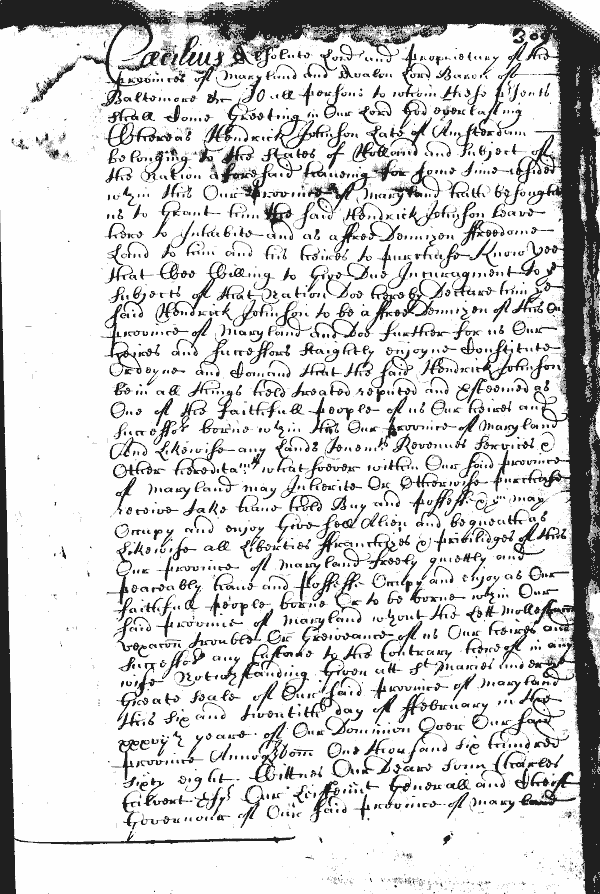 30
Cæcilius Absolute Lord and Proprietary of the
Provinces of Maryland and Avalon Lord Baron of
Baltemore &c To all persons to whom these psents
shall Come Greeting in Our Lord God everlasting
Whereas Hendrick Johnson Late of Amsterdam
belonging to the States of Holland and Subject of
the Nation aforesaid haveing for some time resided
wthin this Our Province of Maryland hath besought
us to Grant him the said Hendrick Johnson Leave
here to Inhabite and as a ffree Dennizen ffreedome
Land to him and his heires to purchase Know Yee
that Wee Willing to Give Due Incuragment to ye
Subjects of that Nation Doe hereby Declare him ye
said Hendrick Johnson to be a free Dennizen of this Our
province of Maryland and Doe further for us Our
heires and Successors Staightly enjoyne Constitute
Ordeyne and Comand that the said Hendrick Johnson
be in all things held treated reputed and Esteemed as
One of the faithfull people of us Our heires and
Successrs borne wthin this Our province of Maryland
And Likewise any Lands Tenemts Revenues Services &
Other heredtamts whatsoever within Our said province
of Maryland may Inherite Or Otherwise purchase
receive take have hold Buy and possesse may
Occupy and enjoy Give Sell Alien and bequeath as
Likewise all Liberties ffranchizes & priviledges of this
Our province of Maryland freely quietly and
peaceably have and possesse Occupy and enjoy as Our
faithfull people borne Or to be borne wthin Our
said province of Maryland wthout the Lett mollestacon
vexacon trouble Or Greivance of us Our heires and
Successors any Custome to the Contrary hereof in any
wise Notwthstanding Given att St Maries under the
Greate Seale of Our said province of Maryland
this Six and twentith day of ffebruary in the
xxxvjth yeare of Our Dominion Over Our said
province Annoq Dom One thousand Six hundred
Sixty eight Wittnes Our Deare Sonn Charles
Calvert Esqr Our Leiftenint Generall and Cheife
Governour of Our said province of Maryland